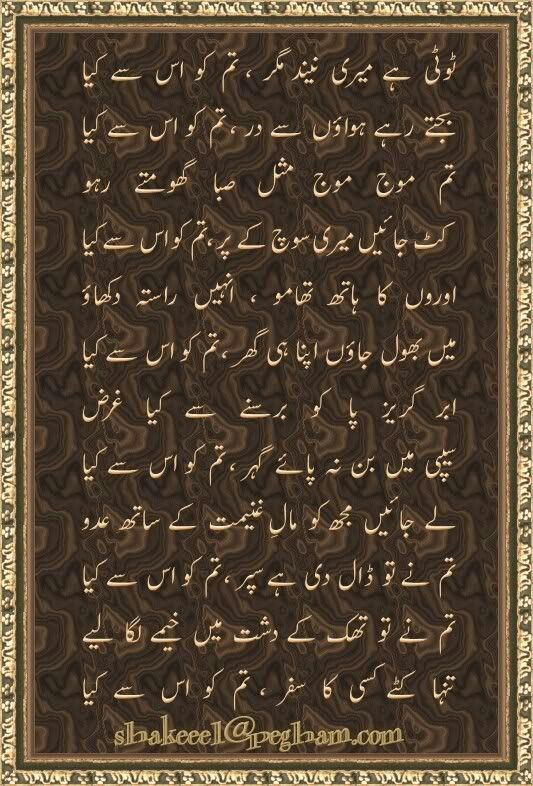 ٹوٹی ہے میری نیند مگر ، تم کو اس سے کیا
بجتے رہے ہواؤں سے در ، تم کو اس سے کیا
تم موج موج مثل صبا گھومتے رہو
کٹ جائیں میری سوچ کے پر ، تم کو اس سے کیا
اوروں کا ہاتھ تھامو ، انہیں راستہ دکھاؤ
میں بھول جاؤں اپنا ہی گھر ، تم کو اس سے کیا
ابر گریز پا کو برسنے سے کیا غرض
سیپی میں بن نہ پائے گہر ، تم کو اس سے کیا
لے جائیں مجھ کو مالِ غنیمت کے ساتھ عدو
تم نے تو ڈال دی ہے سپر ، تم کو اس سے کیا
تم نے تو تھک کے دشت میں خیمے لگا لیے
تنہا کٹے کسی کا سفر ، تم کو اس سے کیا
shakeee1@pegham.com